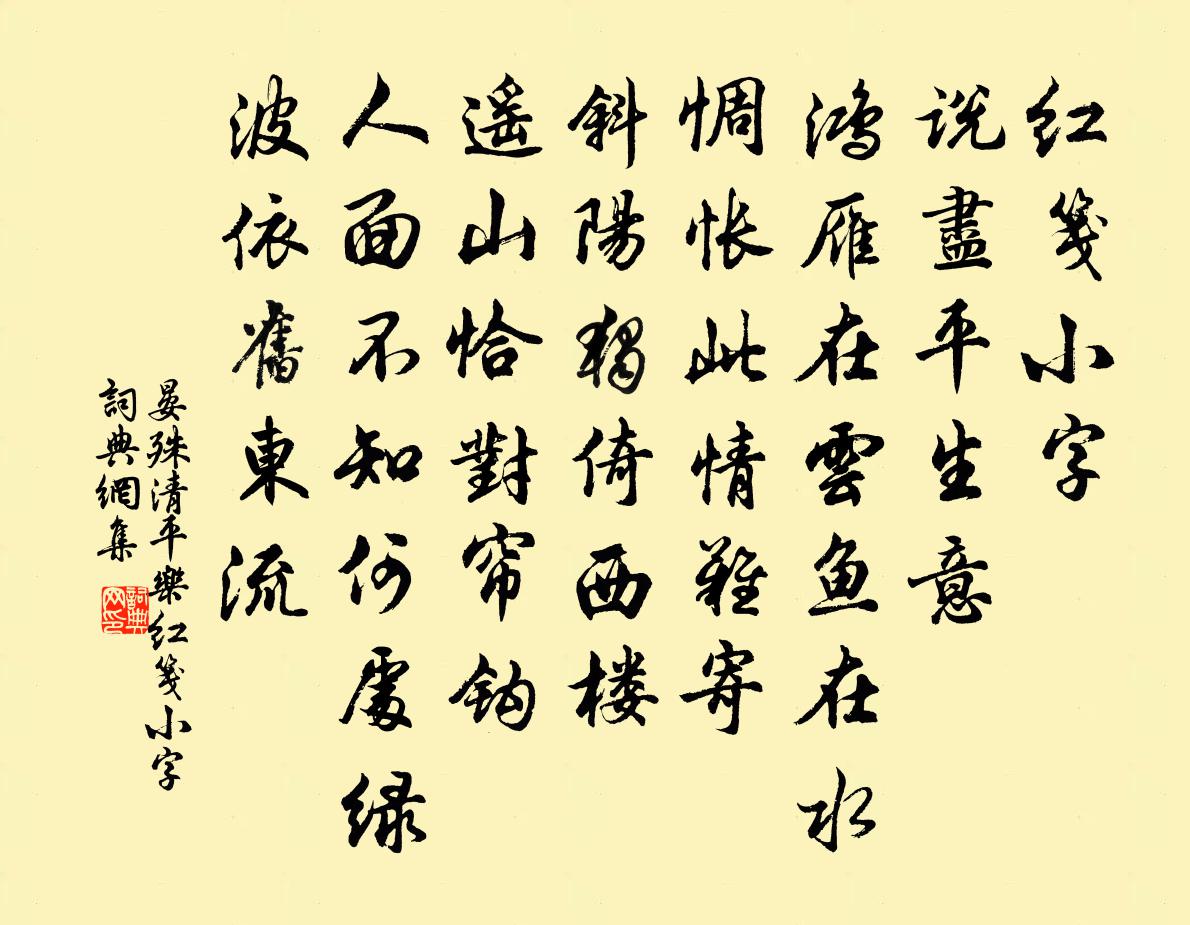 红笺小字
说盡平生意
鸿雁在雲鱼在水
惆怅此情難寄
斜陽獨倚西楼
遥山恰對帘钩
人面不知何處绿
波依舊東流
晏殊清平樂红笺小字
詞典網集
詞典
网印